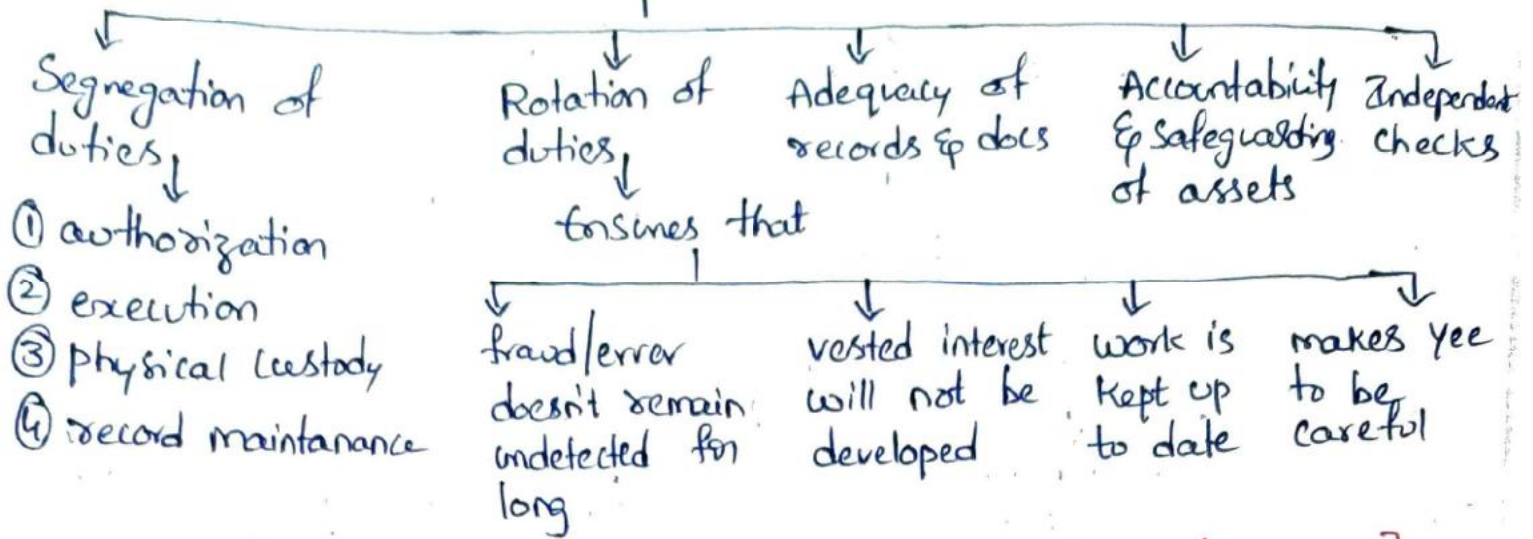 Segregation of
duties,
① authorization
② execution
③ physical custody
④ record maintanance
Rotation of
duties,
Ensures that
fraud/error
doesn't remain
undetected for
long.
vested interest
will not be
developed
work is
kept up
to date
makes yee
to be
careful
Adequacy of
records & docs
Accountability
& safeguarding
of assets
Independent
checks